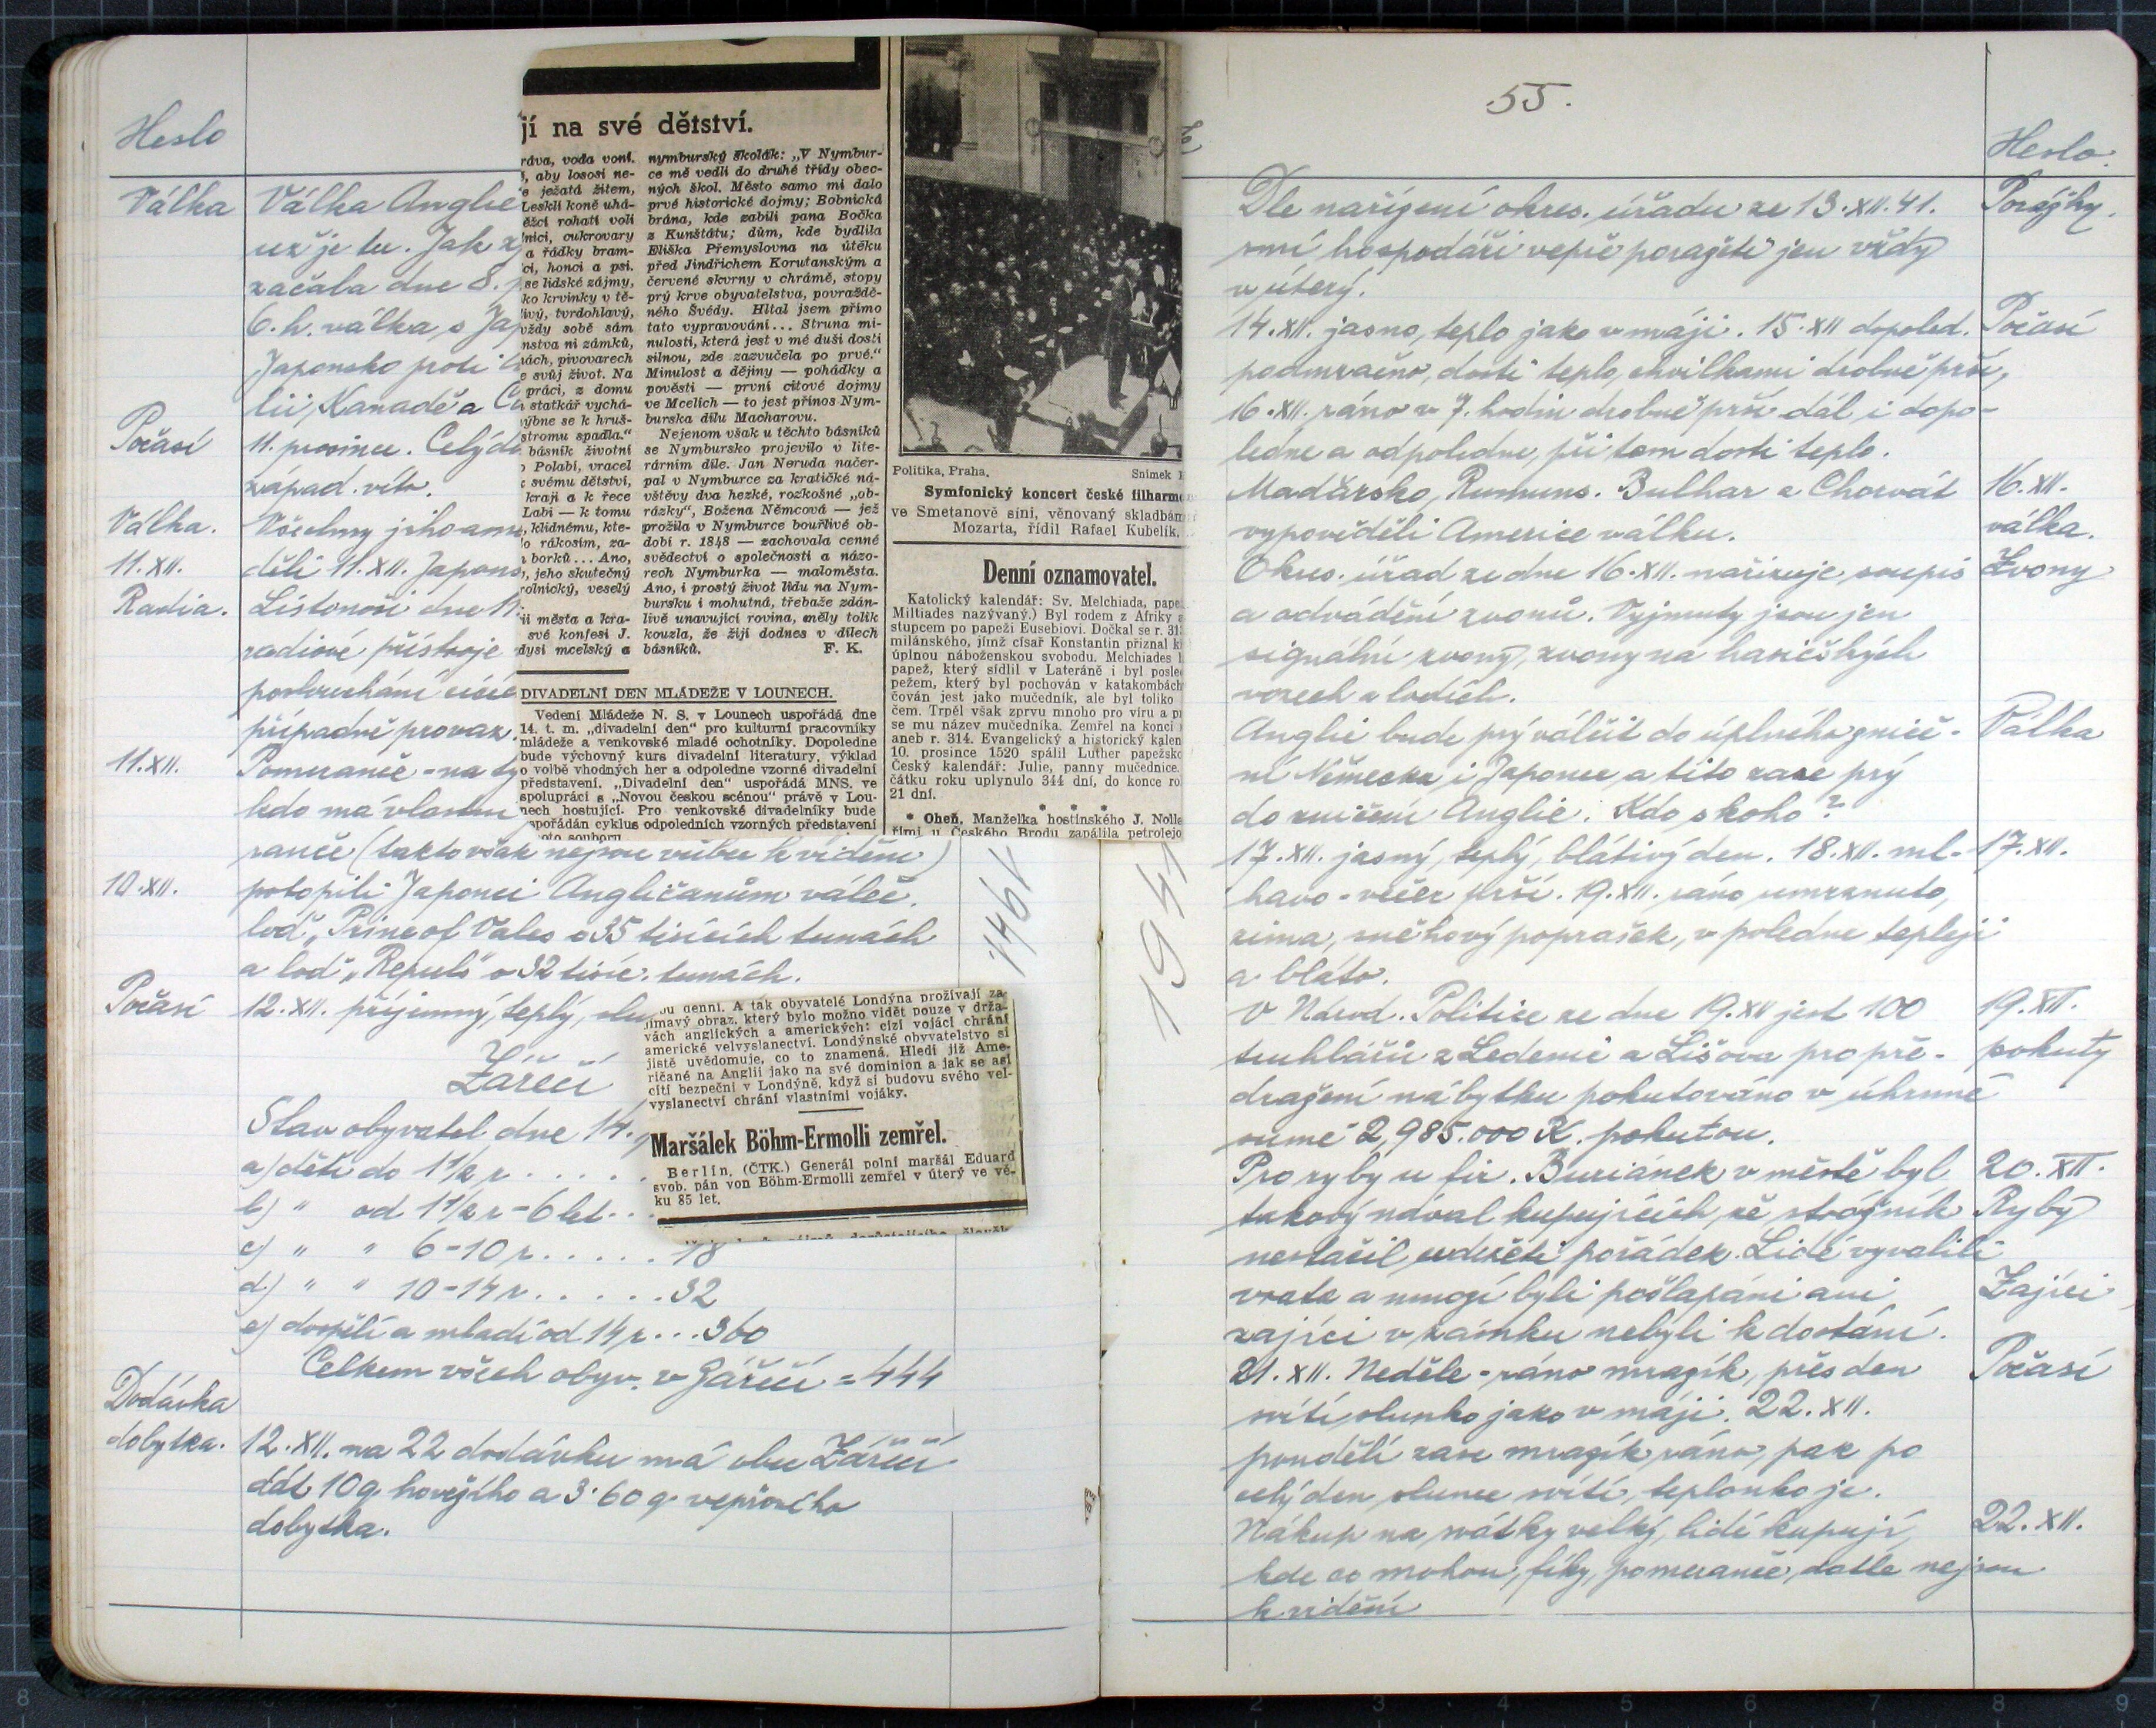 Heslo
Válka
Válka Anglie
už je tu. Jak
začala dne 8.
6. h. válka s Jap
Japonsko proti
lii, Kanadě a
Počasí
11. prosince. Celý
západ. vítr.
Válka.
Všechny jihoame
11.XII.
děli 11.XII. Japons
Radia.
Listonoši dne 11.
radiové přístroje
poslouchání cizíc
případně provaz.
11.XII.
Pomeranče - na
kdo má vlastní
ranče (takto však nejsou vůbec k vidění)
10.XII.
potopili Japonci Angličanům váleč.
loď „Prince of Vales o 35 tisících tunách
a loď „Repuls" o 32 tisíc. tunách.
Počasí
12.XII. příjemný, teplý, slu
Záříčí
Stav obyvatel dne 14.
a) děti do 1 1/2 r. . . . .
b) " od 1 1/2 r - 6 let . . .
c) " " 6-10 r. . . . . . 18
d) " " 10-14 r. . . . . . 32
e) dospělí a mladí od 14 r. . . 360
Celkem všech obyv. v Záříčí = 444
Dodávka
dobytka.
12.XII. na 22 dodávku má obec Záříčí
dát 10 q hovězího a 3·60 q vepřového
dobytka.
1941
jí na své dětství.
ráva, voda voní.
, aby lososi ne-
e ježatá žitem,
Leskli koně uhá-
ěžci rohatí voli
lníci, cukrovary
a řádky bram-
ci, honci a psi.
se lidské zájmy,
ko krvinky v tě-
livý, tvrdohlavý,
vždy sobě sám
nstva ni zámků,
nách, pivovarech
e svůj život. Na
práci, z domu
statkář vychá-
ýbne se k hruš-
stromu spadla."
básník životní
Polabí, vracel
svému dětství,
kraji a k řece
Labi — k tomu
, klidnému, kte-
o rákosím, za-
borků ... Ano,
, jeho skutečný
rolnický, veselý
ii města a kra-
své konfesi J.
dysi mcelský a
nymburský školák: „V Nymbur-
ce mě vedli do druhé třídy obec-
ných škol. Město samo mi dalo
prvé historické dojmy; Bobnická
brána, kde zabili pana Bočka
z Kunštátu; dům, kde bydlila
Eliška Přemyslovna na útěku
před Jindřichem Korutanským a
červené skvrny v chrámě, stopy
prý krve obyvatelstva, povraždě-
ného Švédy. Hltal jsem přímo
tato vypravování... Struna mi-
nulosti, která jest v mé duši dosti
silnou, zde zazvučela po prvé."
Minulost a dějiny — pohádky a
pověsti — první citové dojmy
ve Mcelích — to jest přínos Nym-
burska dílu Macharovu.
Nejenom však u těchto básníků
se Nymbursko projevilo v lite-
rárním díle. Jan Neruda načer-
pal v Nymburce za kratičké ná-
vštěvy dva hezké, rozkošné „ob-
rázky", Božena Němcová — jež
prožila v Nymburce bouřlivé ob-
dobí r. 1848 — zachovala cenné
svědectví o společnosti a názo-
rech Nymburka — maloměsta.
Ano, i prostý život lidu na Nym-
bursku i mohutná, třebaže zdán-
livě unavující rovina, měly tolik
kouzla, že žijí dodnes v dílech
básníků. F. K.
DIVADELNÍ DEN MLÁDEŽE V LOUNECH.
Vedení Mládeže N. S. v Lounech uspořádá dne
14. t. m. „divadelní den" pro kulturní pracovníky
mládeže a venkovské mladé ochotníky. Dopoledne
bude výchovný kurs divadelní literatury, výklad
o volbě vhodných her a odpoledne vzorné divadelní
představení. „Divadelní den" uspořádá MNS. ve
spolupráci s „Novou českou scénou" právě v Lou-
nech hostující. Pro venkovské divadelníky bude
uspořádán cyklus odpoledních vzorných představení
souboru
Politika, Praha. Snímek
Symfonický koncert české filharmo
ve Smetanově síni, věnovaný skladbám
Mozarta, řídil Rafael Kubelík.
Denní oznamovatel.
Katolický kalendář: Sv. Melchiada, pape
Miltiades nazývaný.) Byl rodem z Afriky
stupcem po papeži Eusebiovi. Dočkal se r. 313
milánského, jímž císař Konstantin přiznal k
úplnou náboženskou svobodu. Melchiades
papež, který sídlil v Lateráně i byl posle
pežem, který byl pochován v katakombách
čován jest jako mučedník, ale byl toliko
čem. Trpěl však zprvu mnoho pro víru a p
se mu název mučedníka. Zemřel na konci
aneb r. 314. Evangelický a historický kalen
10. prosince 1520 spálil Luther papežsko
Český kalendář: Julie, panny mučednice.
čátku roku uplynulo 344 dní, do konce ro
21 dní.
* * *
* Oheň. Manželka hostinského J. Nolle
řími u Českého Brodu zapálila petrolejo
denní. A tak obyvatelé Londýna prožívají za-
jímavý obraz, který bylo možno vidět pouze v drža-
vách anglických a amerických: cizí vojáci chrání
americké velvyslanectví. Londýnské obyvatelstvo si
jistě uvědomuje, co to znamená. Hledí již Ame-
ričané na Anglii jako na své dominion a jak se asi
cítí bezpečni v Londýně, když si budovu svého vel-
vyslanectví chrání vlastními vojáky.
Maršálek Böhm-Ermolli zemřel.
Berlín. (ČTK.) Generál polní maršál Eduard
svob. pán von Böhm-Ermolli zemřel v úterý ve vě-
ku 85 let.
55.
Heslo.
Dle nařízení okres. úřadu ze 13.XII.41.
Porážky.
smí hospodáři vepře porazeti jen vždy
v úterý.
14.XII. jasno, teplo jako v máji. 15.XII dopoled.
Počasí
podmračno, dosti teplo, chvilkami drobně prší,
16.XII. ráno v 7. hodin drobně prší dál i dopo-
ledne a odpoledne, při tom dosti teplo.
Maďarsko, Rumuns. Bulhar a Chorvát
16.XII.
vypověděli Americe válku.
válka.
Okres. úřad ze dne 16.XII. nařizuje soupis
Zvony
a odvádění zvonů. Vyjmuty jsou jen
signální zvony, zvony na hasičských
vozech a lodích.
Anglie bude prý válčit do úplného zniče-
Válka
ní Německa i Japonce a tito zase prý
do zničení Anglie. Kdo s koho?
17.XII. jasný, teplý, blátivý den. 18.XII. ml-
17.XII.
havo - večer prší. 19.XII. ráno umrznuto,
zima, sněhový poprašek, v poledne tepleji
a bláto.
V Národ. Politice ze dne 19.XII jest 100
19.XII.
truhlářů z Ledenic a Lišova pro pře-
pokuty
dražení nábytku pokutováno v úhrnné
sumě 2,985.000 K. pokutou.
Pro ryby u fir. Buriánek v městě byl
20.XII.
takový nával kupujících, že strážník
Ryby
nestačil udržeti pořádek. Lidé vyvalili
vrata a mnozí byli pošlapáni ani
Zajíci
zajíci v zámku nebyli k dostání.
21.XII. Neděle - ráno mrazík, přes den
Počasí
svítí slunko jako v máji. 22.XII.
pondělí zase mrazík ráno, pak po
celý den slunce svítí, teplonko je.
Nákup na svátky velký, lidé kupují,
22.XII.
kde co mohou, fíky, pomeranče, datle nejsou
k vidění
1941
8
1
2
3
4
5
6
7
8
9